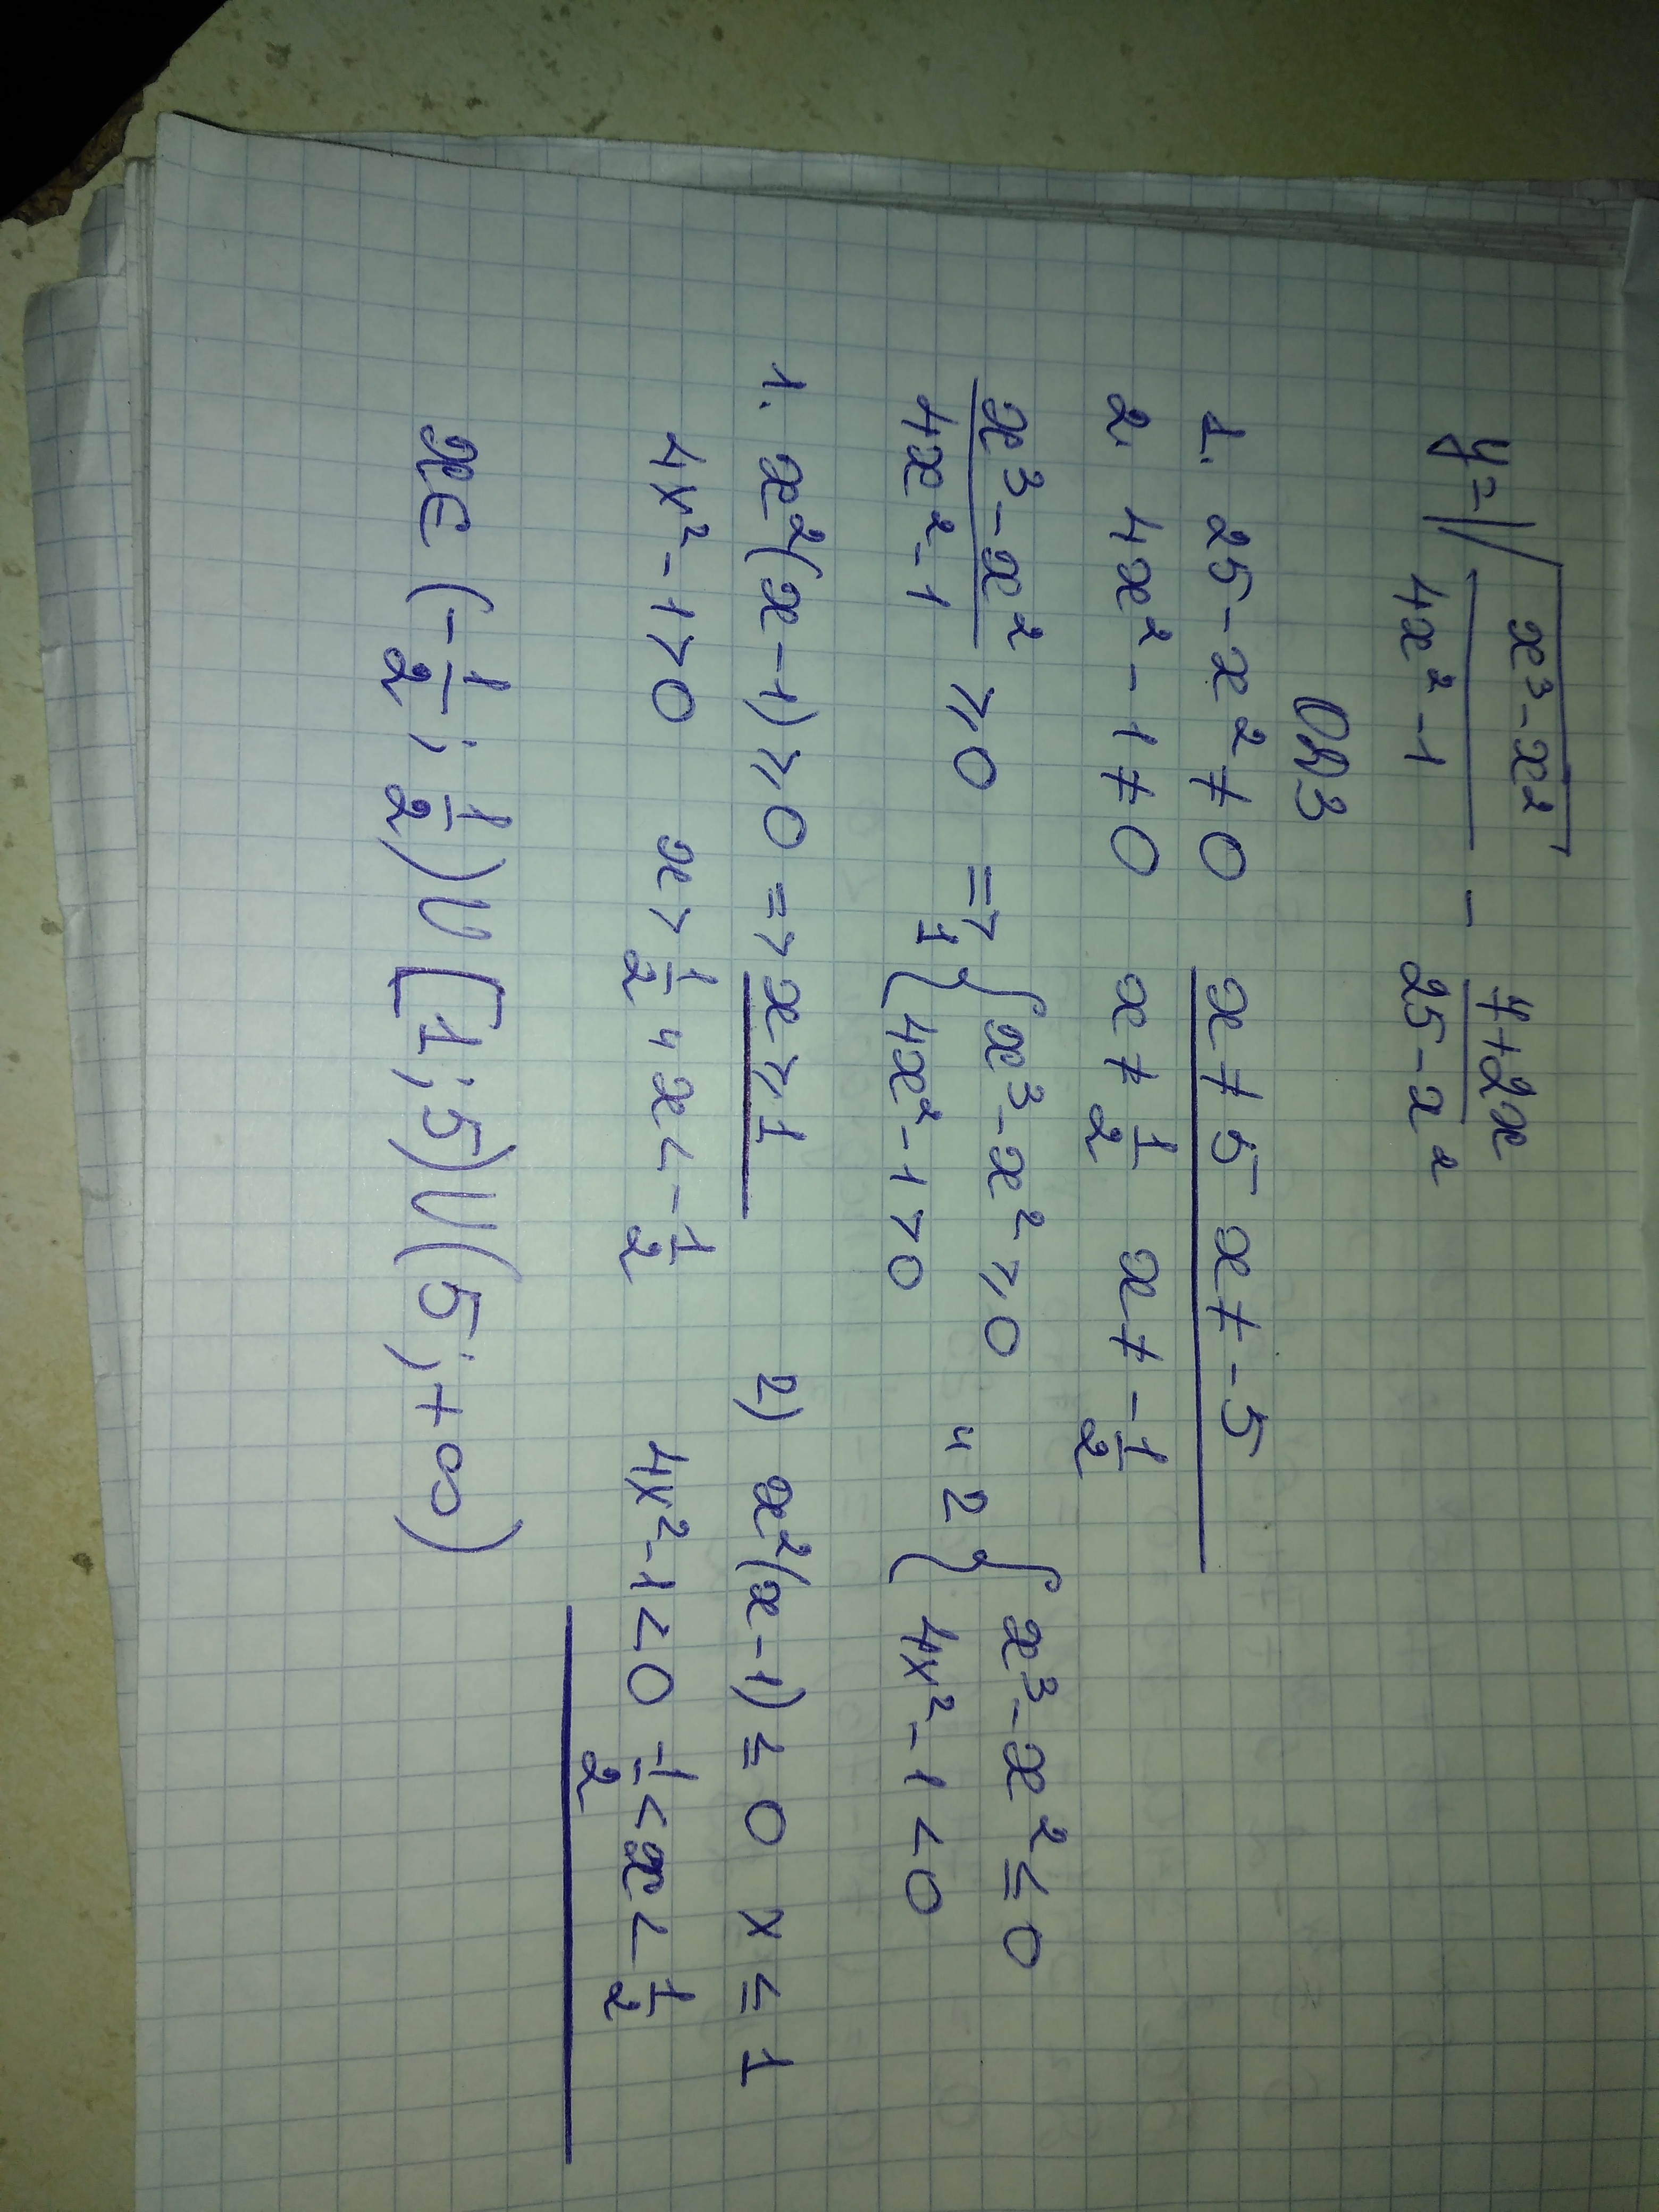 y = √((x³ - x²)/(4x² - 1)) - (7+2x)/(25 - x²)
ОДЗ
1. 25 - x² ≠ 0 x ≠ 5 x ≠ -5
2. 4x² - 1 ≠ 0 x ≠ 1/2 x ≠ -1/2
(x³ - x²)/(4x² - 1) ≥ 0 => 1 { x³ - x² ≥ 0 и 2 { x³ - x² ≤ 0
4x² - 1 > 0 4x² - 1 < 0
1. x²(x - 1) ≥ 0 => x ≥ 1 2) x²(x - 1) ≤ 0 x ≤ 1
4x² - 1 > 0 x > 1/2 и x < -1/2 4x² - 1 < 0 -1/2 < x < 1/2
x ∈ (-1/2; 1/2) ∪ [1; 5) ∪ (5; +∞)